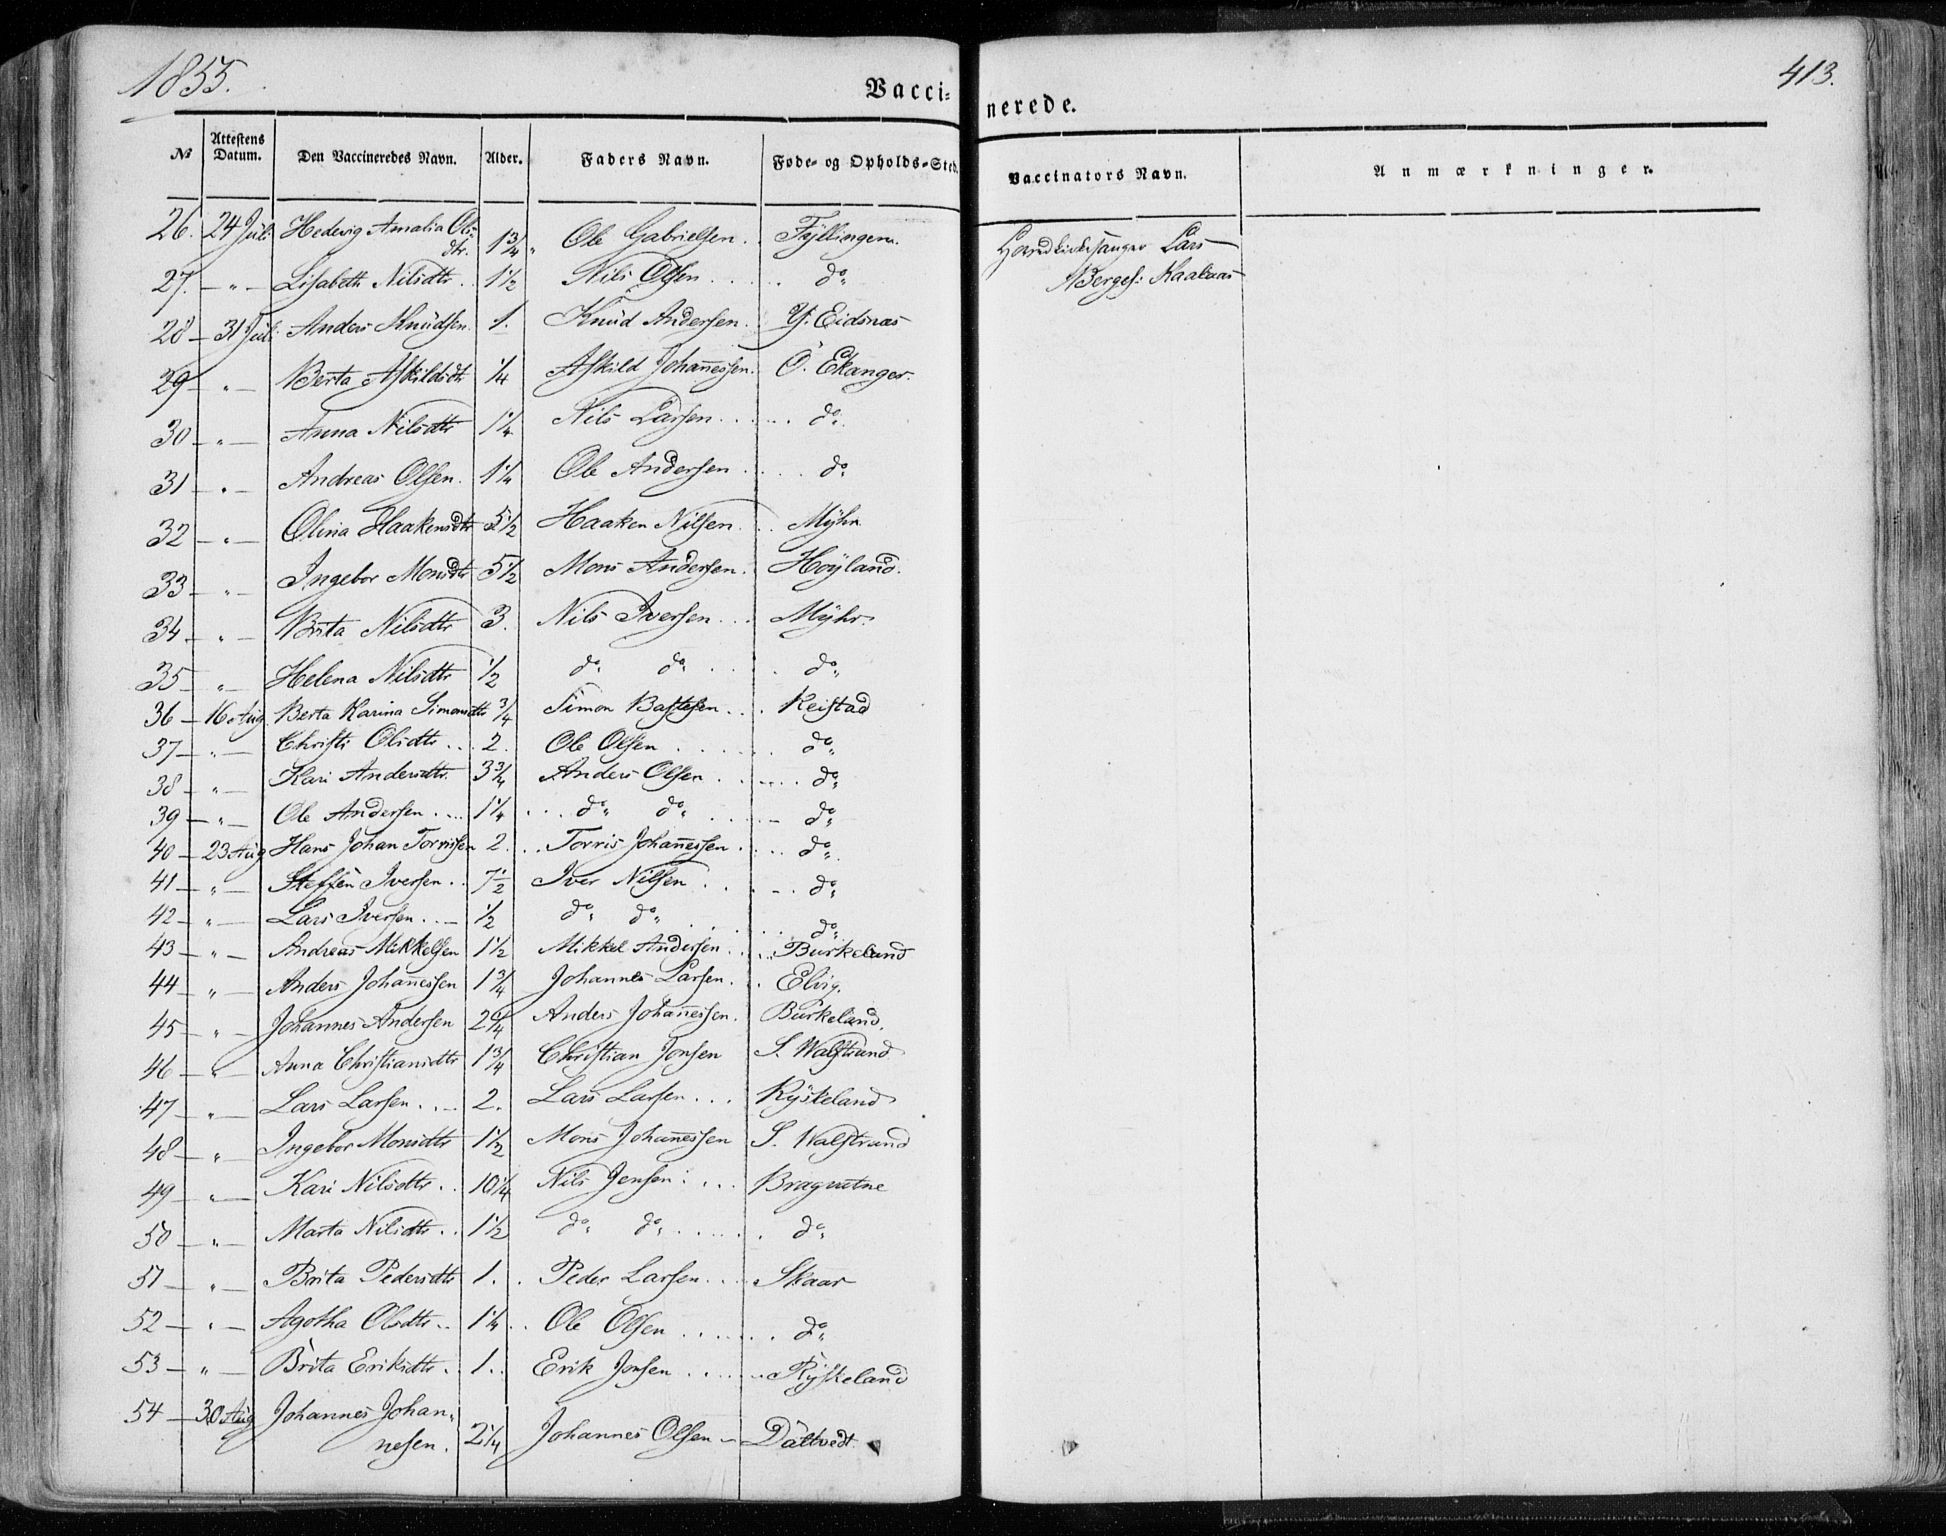 1855.
413.
Vacci-
nerede.
№ Attestens Datum. Den Vaccineredes Navn. Alder. Faders Navn. Føde- og Opholds-Sted. Vaccinators Navn. Anmærkninger.
26. 24 Juli Hedevig Amalia Ols- dtr. 1 3/4 " Ole Gabrielsen . Fyllingen. Lars
27. — " — Lisabeth Nilsdtr. 1 1/2 Nils Olsen . . . . do
28 — 31 Juli Anders Knudsen. 1. Knud Andersen . Y. Eidsnæs
29 — " — Berta Askildsdtr 1/4 Askild Johanessen. O. Ekanger.
30 — " — Anna Nilsdtr 1 1/4 Nils Larsen . . . . . do
31 — " — Andreas Olsen. 1 1/4 Ole Andersen . . . do
32 — " — Olina Haakensdtr 5 1/2 Haaken Nilsen . . Myhr
33 — " — Ingebor Monsdtr 5 1/2 Mons Andersen . Høyland.
34 — " — Brita Nilsdtr 3. Nils Iversen . . . Myhr.
35 — " — Helena Nilsdtr 1/2 do do . . . do
36 — 16 Aug. Berta Karina Simonsdtr 3/4 Simon Bastesen . . . Keistad
37 — " — Christi Olsdtr . . 2. Ole Olsen . . . . . do
38 — " — Kari Andersdtr. 3 3/4 Anders Olsen . . . . . do
39 — " — Ole Andersen . . . 1 1/4 . . . do do . . . . do
40 — 23 Aug Hans Johan Torrissen 2. . . Torris Johanessen . . . do
41 — " — Steffen Iversen . . 7 1/2 Iver Nilsen . . . . . do
42 — " — Lars Iversen . . — 1/2 do do . . . . do
43 — " — Andreas Mikkelsen 1 1/2 Mikkel Andersen . . . Burkeland
44 — " — Anders Johanessen 1 3/4 Johannes Larsen . . . Elvig.
45 — " — Johannes Andersen 2 1/4 Anders Johanessen . Burkeland.
46 — " — Anna Christiansdtr 1 3/4 Christian Jonsen S. Walstrand
47 — " — Lars Larsen . . — 2. Lars Larsen . . . Ryskeland
48 — " — Ingebor Monsdtr 1 1/2 Mons Johanessen S. Walstrand
49 — " — Kari Nilsdtr . . 10 1/4 Nils Jensen . . . Bragvatne
50 — " — Marta Nilsdtr . . 1 1/2 do do . . . . . do
51 — " — Brita Pedersdtr 1. . Peder Larsen . . . Skaar
52 — " — Agotha Olsdtr . . 1 1/4 . . Ole Olsen . . . . . do
53 — " — Brita Eriksdtr . . 1. . Erik Jonsen . . . . . Ryskeland
54 — 30 Aug Johannes Johan-
nesen. 2 1/4 Johannes Olsen — Daltvedt